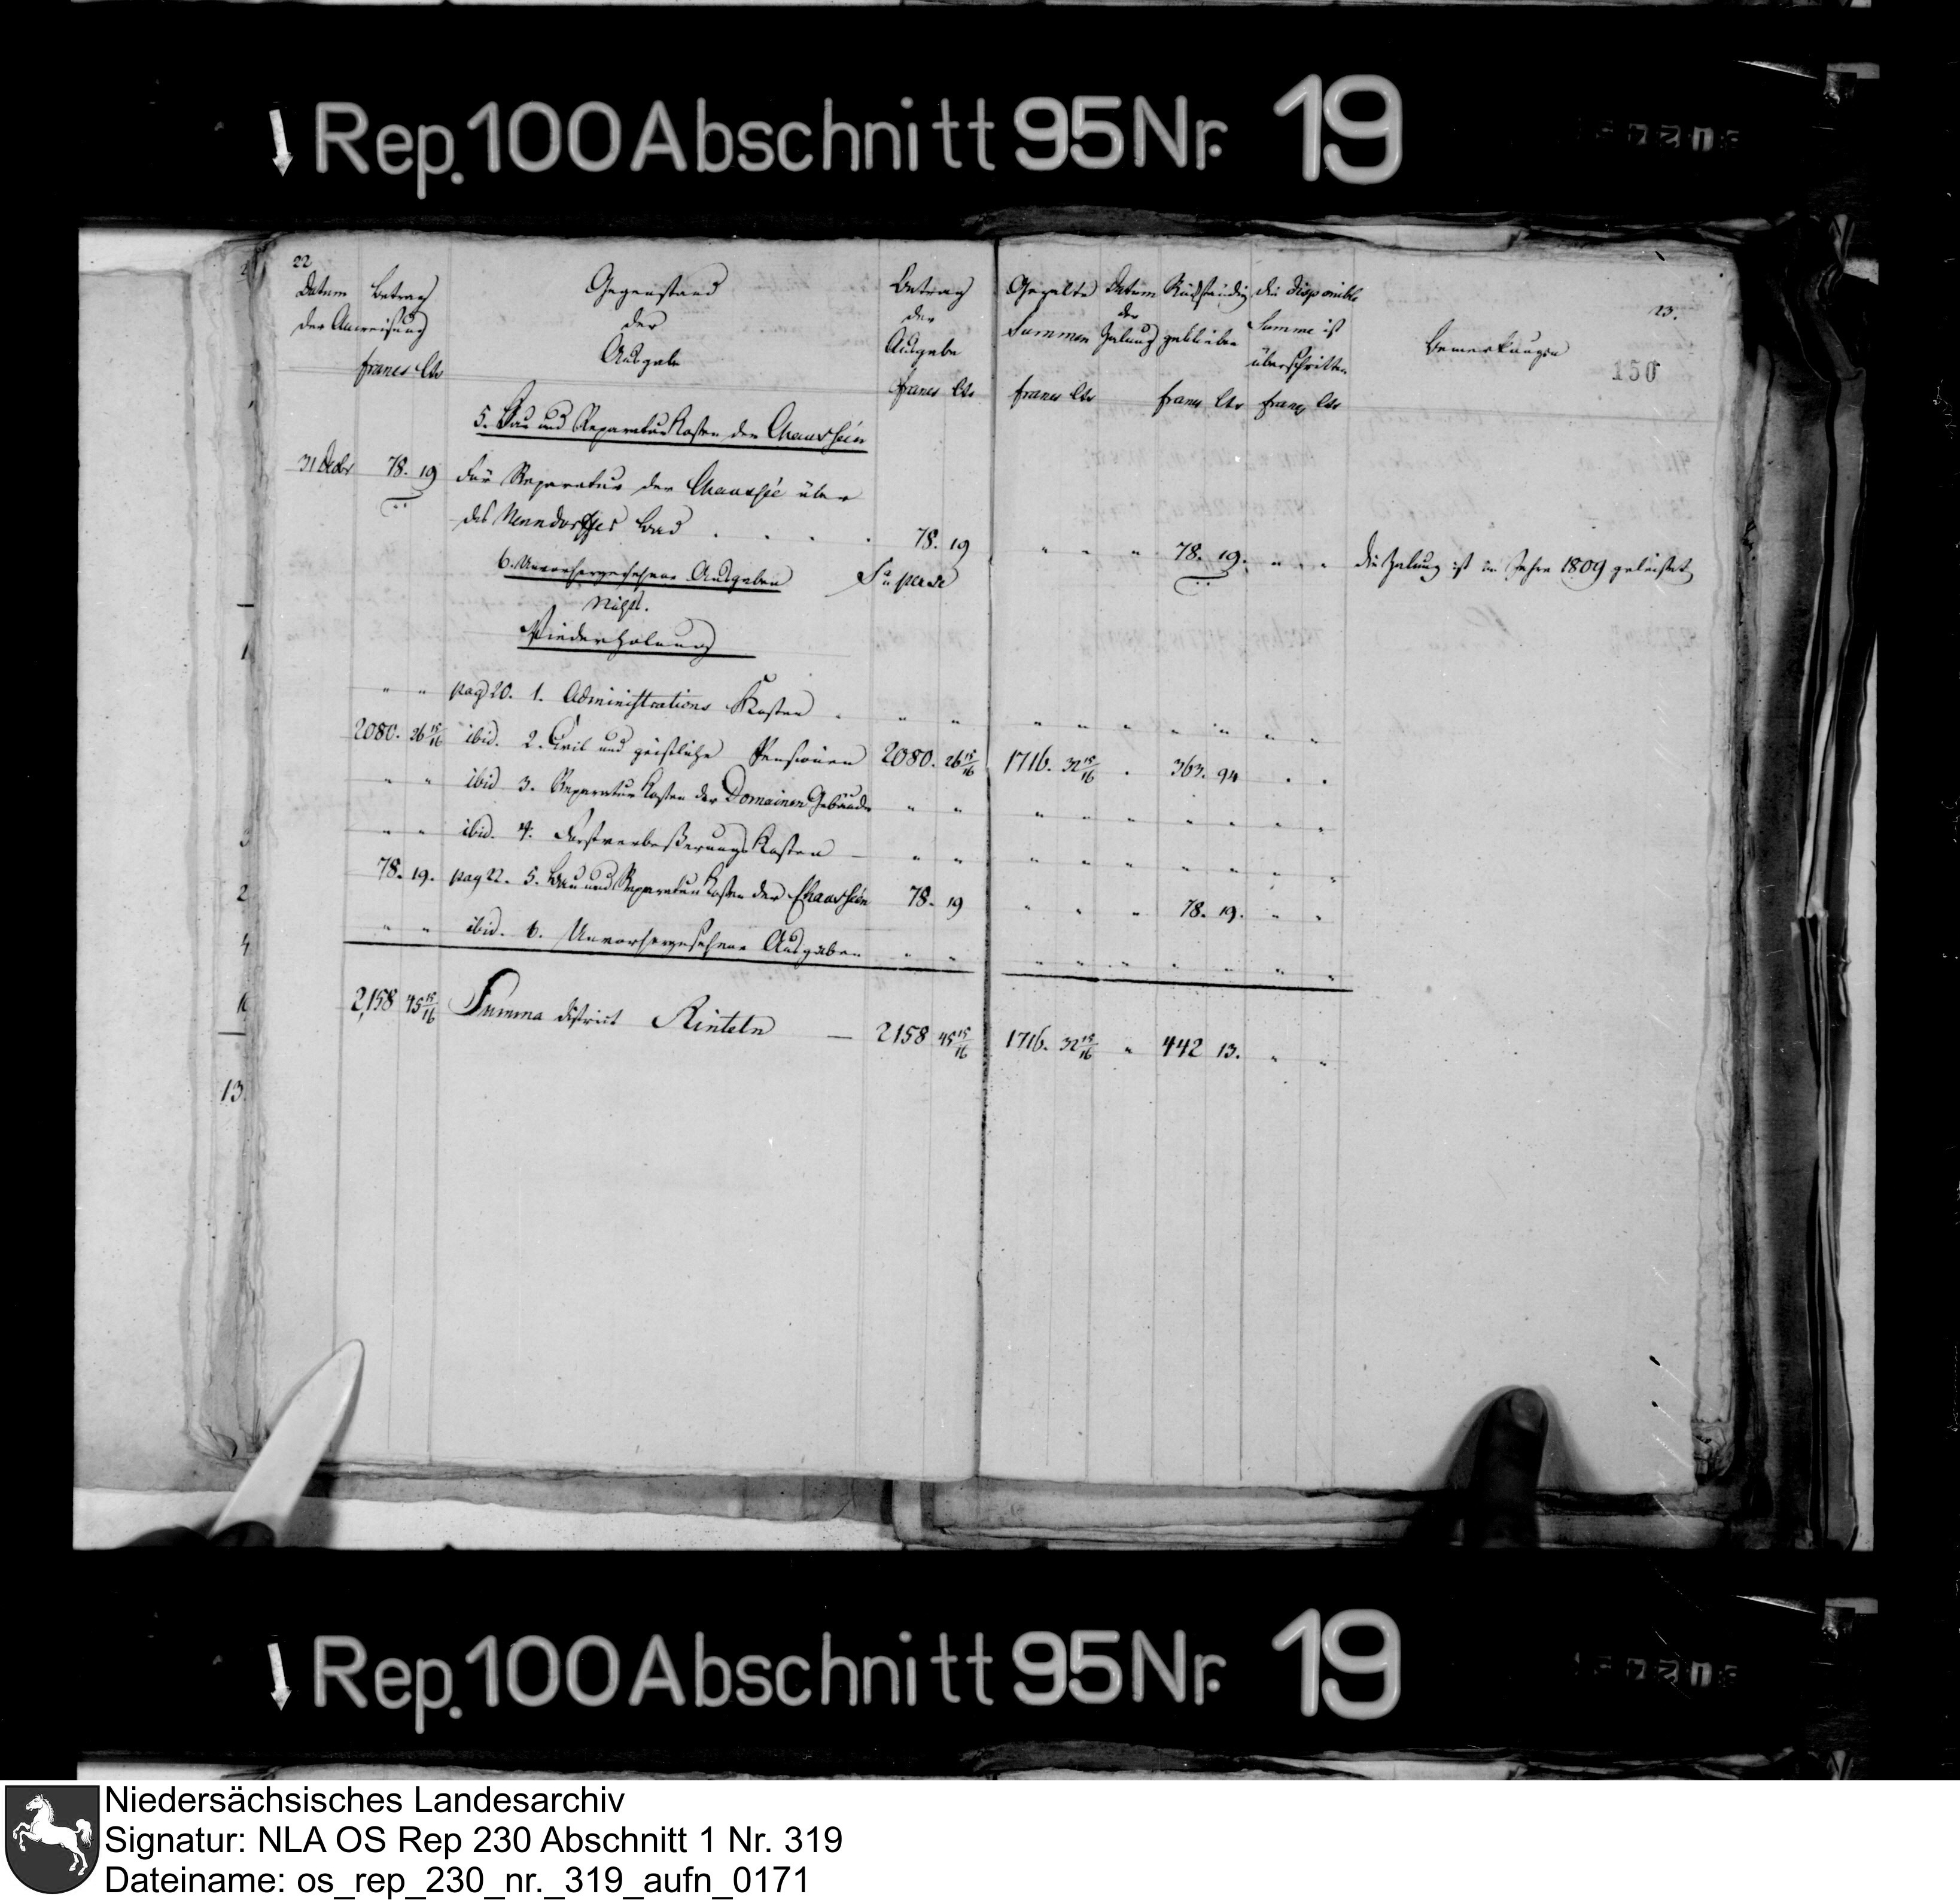 Rep. 100 Abschnitt 95 Nr. 19
22
Datum Betrag
der Anweisung
francs Cts
Gegenstand
der
Ausgabe
Betrag
der
Ausgabe
francs Cts
Gezalte Summen
francs Cts
Datum
der
Zalung
Rückständig
geblieben
francs Cts
die disponible
Summe ist
überschritten
francs Cts
Bemerkungen
23.
150
5. Bau und Reparatur Kosten der Chausséen
31 Decbr 78. 19 Für Reparatur der Chaussée über
das Nenndorffer Bad . . . . 78. 19 " " " 78. 19. " " " die Zalung ist im Jahre 1809 geleistet
6. Unvorhergesehene Ausgaben Sa per se
Nichts.
Wiederholung
" " pag 20. 1. Administrations Kosten . " " " " " " " " "
2080. 26 15/16 ibid. 2. Civil und geistliche Pensionen 2080. 26 15/16 1716. 32 15/16 . 363. 94 . .
" " ibid 3. Reparatur Kosten der Domainen Gebäude " " " " " " " " "
" " ibid. 4. Forstverbeßerungs Kosten — " " " " " " " " "
78. 19. pag 22. 5. Bau und Reparatur Kosten der Chausséen 78. 19 " " " 78. 19. " "
" " ibid. 6. Unvorhergesehene Ausgaben " " " " " " " " "
2,158 45 15/16 Summa District Rinteln — 2158 45 15/16 1716. 32 15/16 " 442 13. " "
13.
Rep. 100 Abschnitt 95 Nr. 19
Niedersächsisches Landesarchiv
Signatur: NLA OS Rep 230 Abschnitt 1 Nr. 319
Dateiname: os_rep_230_nr._319_aufn_0171